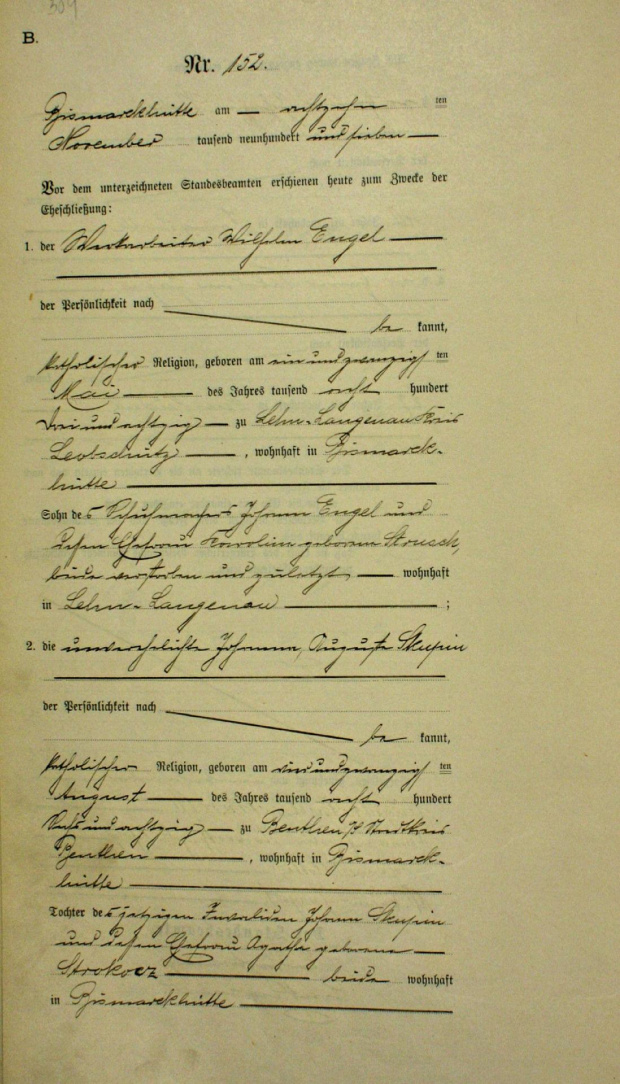 B.
Nr. 152.
Bismarckhütte am — achtzehn ten
November tausend neunhundert und sieben —
Vor dem unterzeichneten Standesbeamten erschienen heute zum Zwecke der
Eheschließung:
1. der Werkarbeiter Wilhelm Engel —
der Persönlichkeit nach
be kannt,
katholischer Religion, geboren am einundzwanzigs ten
Mai — des Jahres tausend acht hundert
dreiundachtzig — zu Lehn-Langenau Kreis
Leobschütz — , wohnhaft in Bismarck-
hütte —
Sohn des Schuhmachers Johann Engel und
dessen Ehefrau Karolina geborenen
beide verstorben und zuletzt — wohnhaft
in Lehn-Langenau — ;
2. die unverehelichte Johanna, Auguste Skupin
der Persönlichkeit nach
be kannt,
katholischer Religion, geboren am vierundzwanzigs ten
August — des Jahres tausend acht hundert
sechsundachtzig — zu Beuthen Stadtkreis
Beuthen — , wohnhaft in Bismarck-
hütte —
Tochter des jetzigen Invaliden Johann Skupin
und dessen Ehefrau Agathe geborene —
Strokocz — beide wohnhaft
in Bismarckhütte —